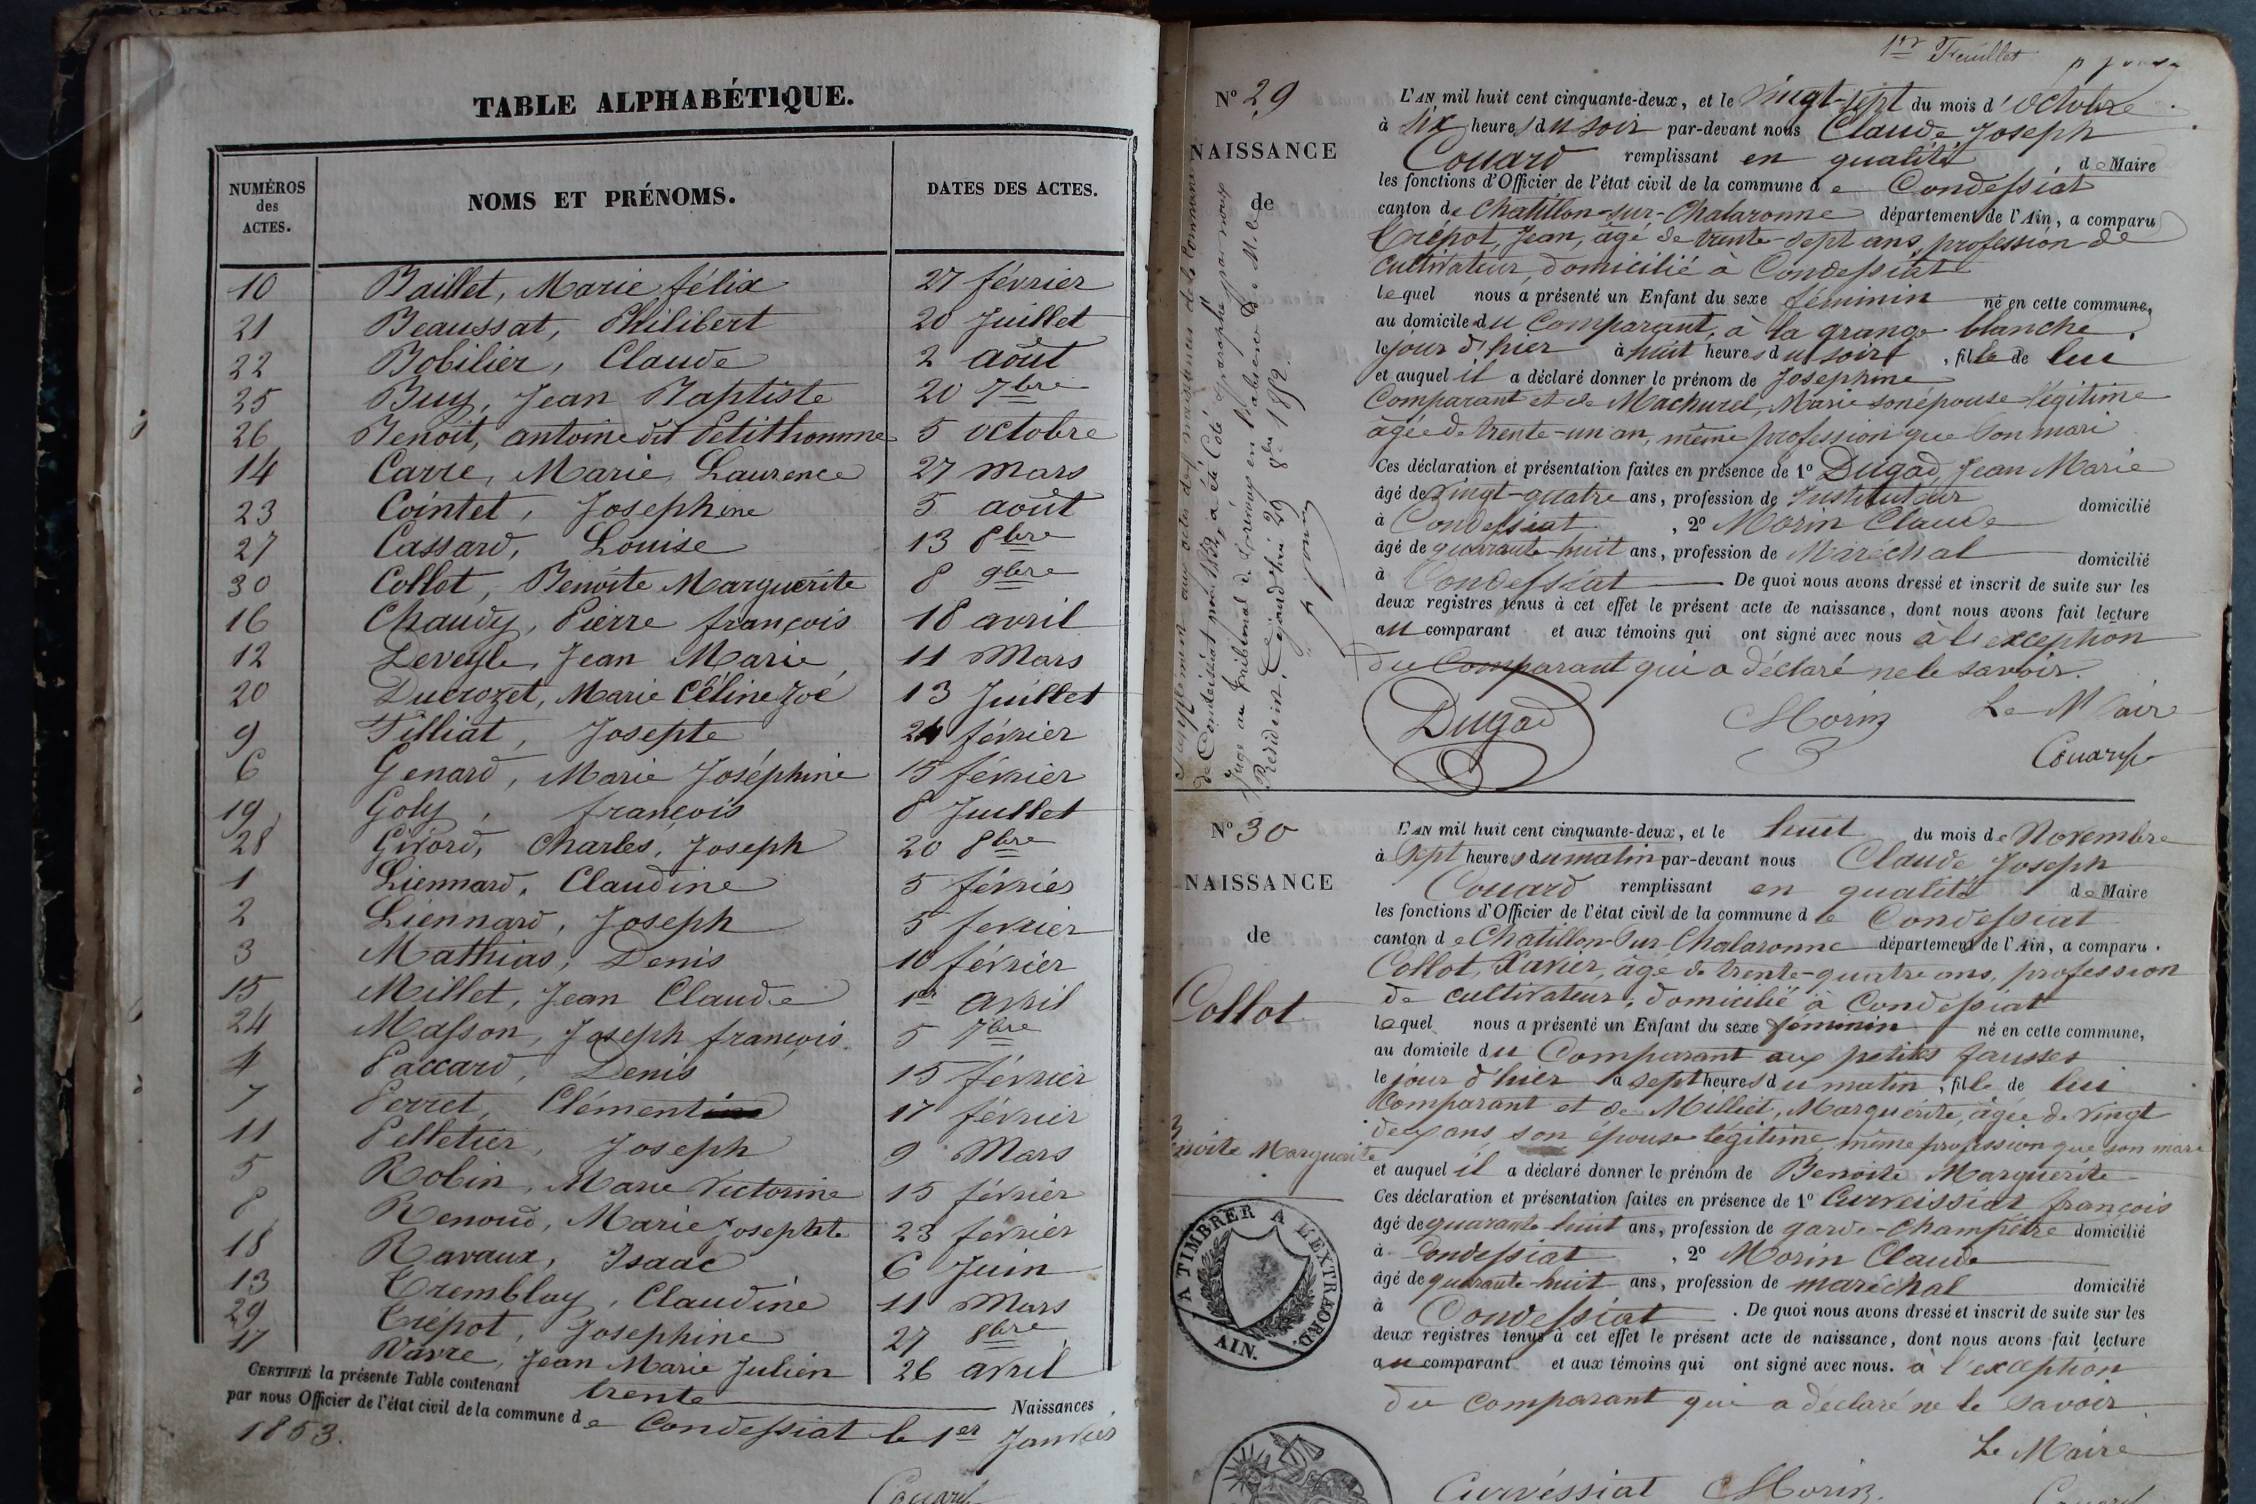 TABLE ALPHABÉTIQUE.
NUMÉROS des ACTES.
NOMS ET PRÉNOMS.
DATES DES ACTES.
10 Baillet, Marie félix 27 février
21 Beaussat, Philibert 20 Juillet
22 Bobilier, Claude 2 août
25 Buy, Jean Baptiste 20 7bre
26 Benoit, antoine dit Petithomme 5 octobre
14 Carre, Marie Laurence 27 mars
23 Cointet, Josephine 5 août
27 Cassard, Louise 13 8bre
30 Collot, Benoite Marguerite 8 9bre
16 Chaudy, Pierre françois 18 avril
12 Deveyle, Jean Marie 11 Mars
20 Ducrozet, Marie Céline Zoé 13 Juillet
9 Filliat, Josepte 24 février
6 Genard, Marie Joséphine 15 février
19 Goly, françois 8 Juillet
28 Girord, Charles, Joseph 20 8bre
1 Liennard, Claudine 5 février
2 Liennard, Joseph 5 fevrier
3 Mathias, Denis 10 février
15 Millet, Jean Claude 1er avril
24 Masson, Joseph françois 5 7bre
4 Paccard, Denis 15 février
7 Perret, Clément 17 février
11 Pelletier, Joseph 9 Mars
5 Robin, Marie Victorine 15 février
8 Renoud, Marie Josephte 23 février
18 Ravaux, Isaac 6 Juin
13 Tremblay, Claudine 11 Mars
29 Trépot, Josephine 27 8bre
17 Varre, Jean Marie Julien 26 avril
CERTIFIÉ la présente Table contenant trente Naissances
par nous Officier de l'état civil de la commune de Condessiat le 1er Janvier
1853.
Couard
1er Feuillet
No 29
NAISSANCE
de
L'AN mil huit cent cinquante-deux, et le vingt-sept du mois d'octobre
à six heures du soir par-devant nous Claude Joseph
Couard remplissant en qualité de Maire
les fonctions d'Officier de l'état civil de la commune de Condessiat
canton de Chatillon-sur-Chalaronne département de l'Ain, a comparu
Trépot, Jean, âgé de trente-sept ans, profession de
cultivateur, domicilié à Condessiat
lequel nous a présenté un Enfant du sexe féminin né en cette commune,
au domicile du Comparant, à la grange blanche
le jour d'hier à huit heures du soir, fille de lui
et auquel il a déclaré donner le prénom de Josephine
Comparant et de Machurel, Marie son épouse légitime
âgée de trente-un an, même profession que son mari
Ces déclaration et présentation faites en présence de 1o Dugad, Jean Marie
âgé de vingt-quatre ans, profession de Instituteur domicilié
à Condessiat, 2o Morin Claude
âgé de quarante-huit ans, profession de Maréchal domicilié
à Condessiat De quoi nous avons dressé et inscrit de suite sur les
deux registres tenus à cet effet le présent acte de naissance, dont nous avons fait lecture
au comparant et aux témoins qui ont signé avec nous à l'exception
du Comparant qui a déclaré ne le savoir.
Dugad Morin Le Maire
Couard
No 30
NAISSANCE
de
Collot
Marguerite
L'AN mil huit cent cinquante-deux, et le huit du mois de Novembre
à sept heures du matin par-devant nous Claude Joseph
Couard remplissant en qualité de Maire
les fonctions d'Officier de l'état civil de la commune de Condessiat
canton de Chatillon-Sur-Chalaronne département de l'Ain, a comparu
Collot, Xavier, âgé de trente-quatre ans, profession
de cultivateur, domicilié à Condessiat
lequel nous a présenté un Enfant du sexe féminin né en cette commune,
au domicile du Comparant aux petites fausses
le jour d'hier à sept heures du matin, fille de lui
Comparant et de Milliet, Marguerite, âgée de vingt
deux ans, son épouse légitime, même profession que son mari
et auquel il a déclaré donner le prénom de Benoite Marguerite
Ces déclaration et présentation faites en présence de 1o Curveissiat françois
âgé de quarante huit ans, profession de garde-champêtre domicilié
à Condessiat, 2o Morin Claude
âgé de quarante-huit ans, profession de maréchal domicilié
à Condessiat. De quoi nous avons dressé et inscrit de suite sur les
deux registres tenus à cet effet le présent acte de naissance, dont nous avons fait lecture
au comparant et aux témoins qui ont signé avec nous. à l'exception
du comparant qui a déclaré ne le savoir
Le Maire
Curvéssiat Morin
A TIMBRER A L'EXTRAORD. AIN.